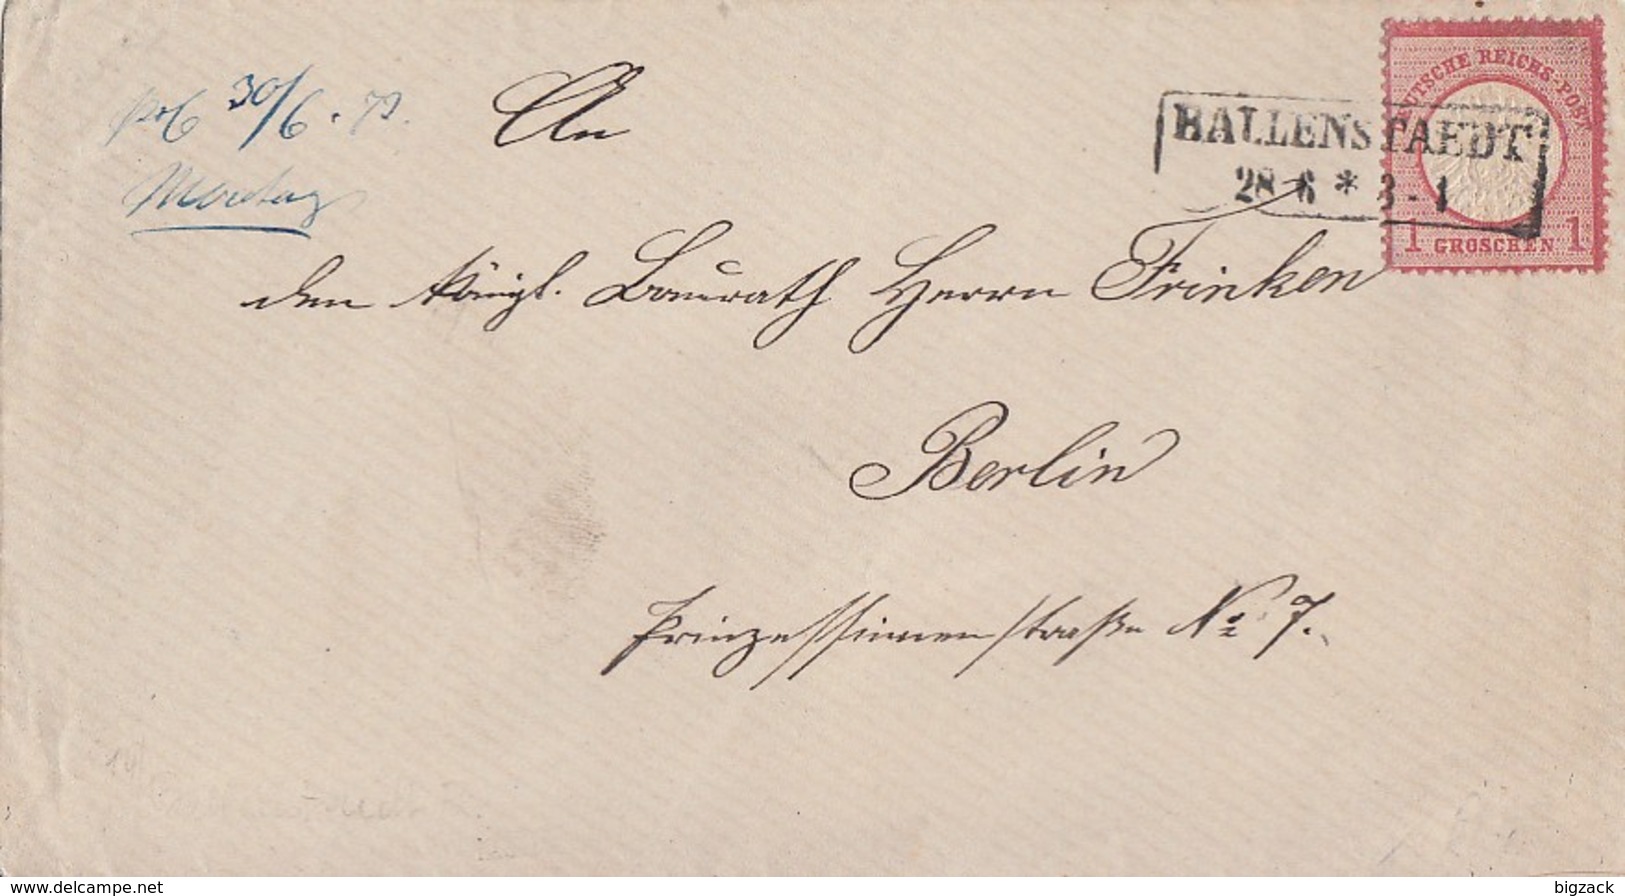 30/6. 73.
Montag
An
BALLENSTAEDT
28 6 * 3-4
DEUTSCHE REICHS-POST
1 GROSCHEN 1
den Königl. Baurath Herrn Frinken
Berlin
Prinzessinnenstraße No 7.
www.delcampe.net
bigzack